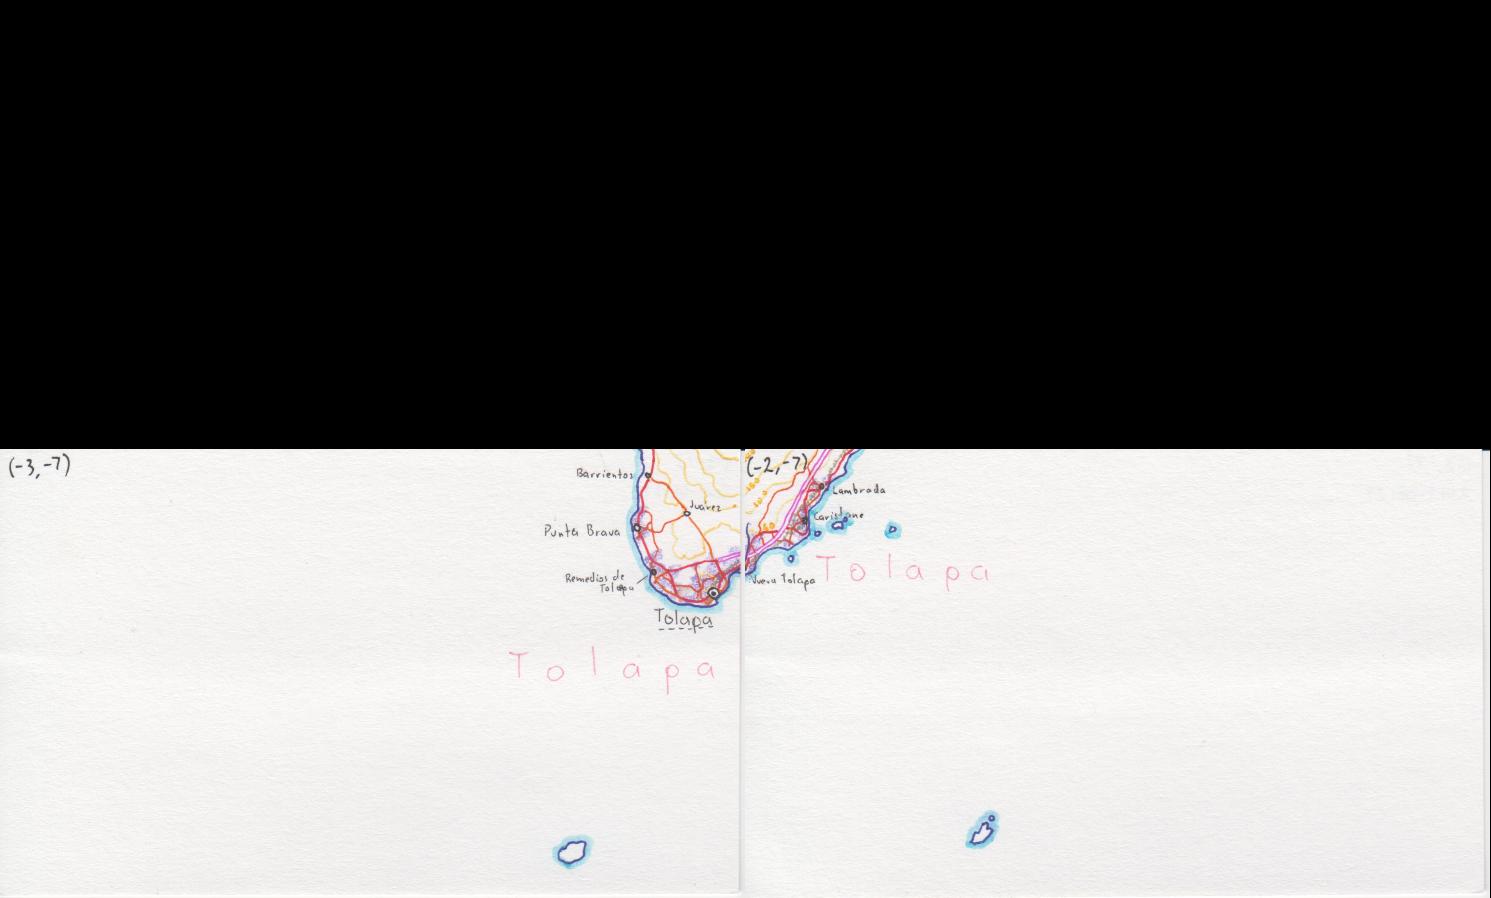 (-3,-7)
Barrientos
Juárez
Punta Brava
Remedios de
Tolapa
Tolapa
Tolapa
(-2,-7)
Lambrada
Tolapa
Tolapa